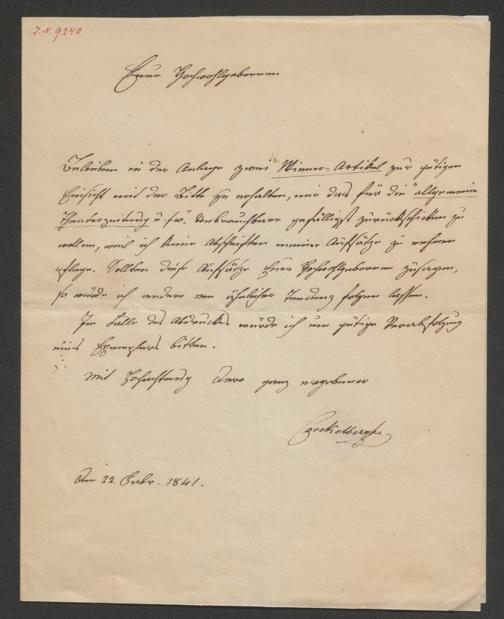 I.N. 9240
Euer Hochwohlgeboren
Belieben in der Anlage zwei Wiener-Artikel zur gütigen
Einsicht mit der Bitte zu erhalten, mir das für die "allgemeine
Theaterzeitung" Unbrauchbare gefälligst zurückschicken zu
wollen, weil ich keine Abschriften meiner Aufsätze zu nehmen
pflege. Sollten diese Aufsätze Euer Hochwohlgeboren zusagen,
so würde ich andere von ähnlicher Tendenz folgen lassen.
Im Falle des Abdruckes würde ich um gütige Verabfolgung
eines Exemplars bitten.
Mit Hochachtung Dero ganz ergebener
Den 22. 1841.